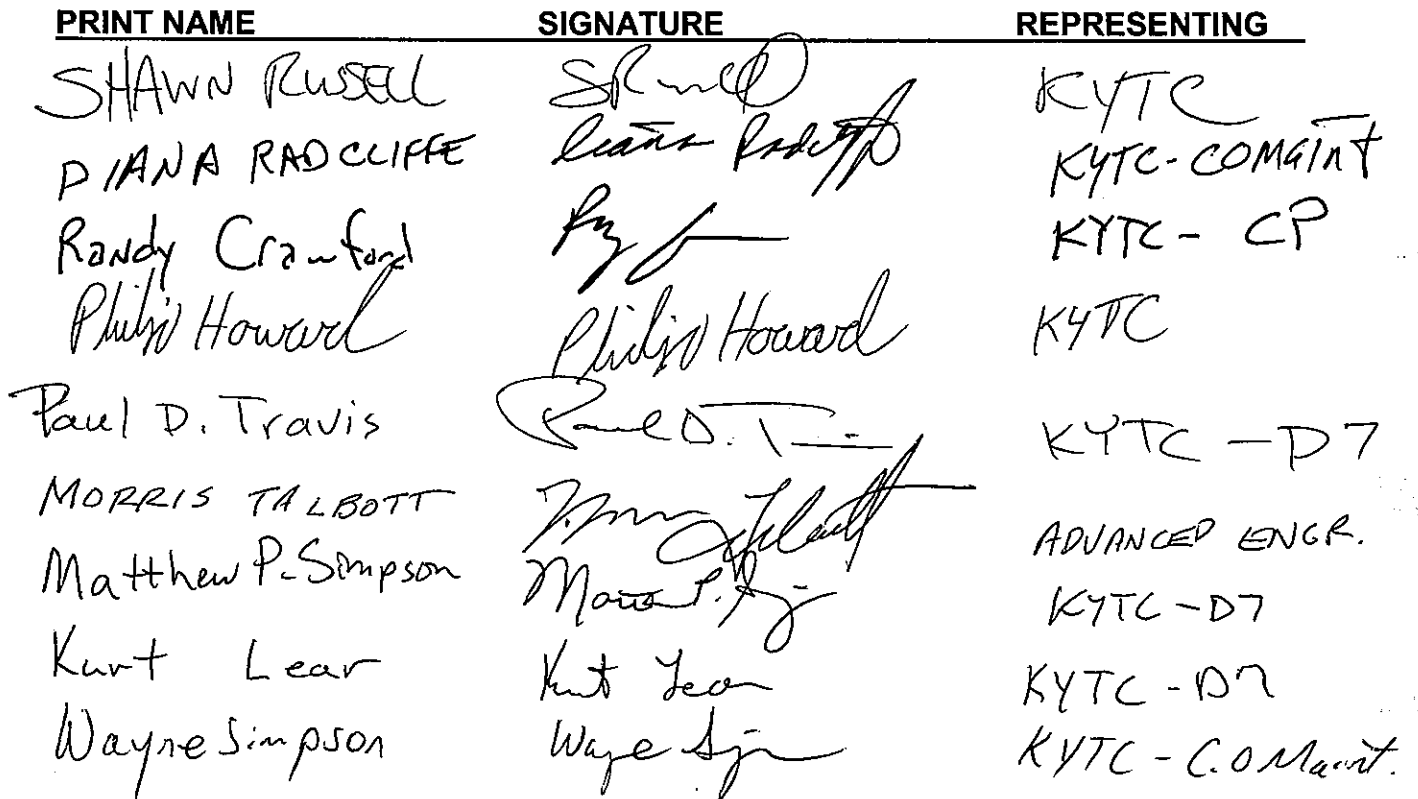 PRINT NAME SIGNATURE REPRESENTING
SHAWN RUSSELL KYTC
DIANA RADCLIFFE Diana Radcliffe KYTC-COMaint
Randy Crawford KYTC - CP
Philip Howard Philip Howard KYTC
Paul D. Travis Paul D. T KYTC - D7
MORRIS TALBOTT ADVANCED ENGR.
Matthew P. Simpson KYTC - D7
Kurt Lear Kurt Lear KYTC - D7
Wayne Simpson Wayne KYTC - C.O Maint.